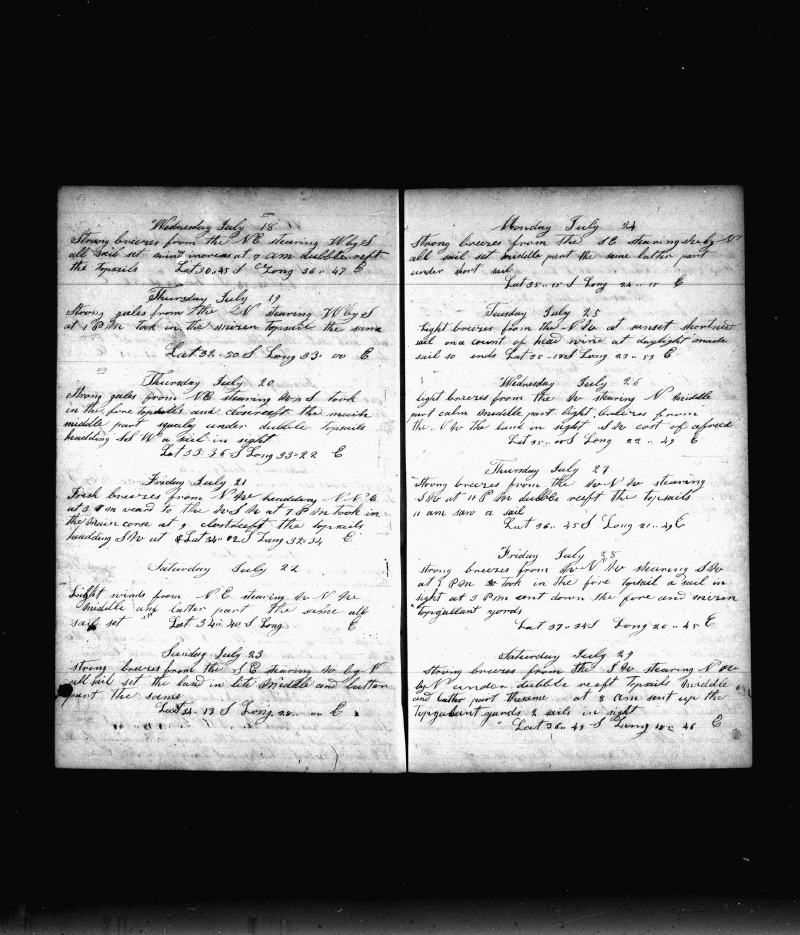 Wednesday July 18
Strong breezes from the NE stearing W by S
all sail set wind increas at 7 am dubble reft
the topsails Lat 30.45 S Long 36.. 47 E
Thursday July 19
Strong gales from the stearing W by S
at 1 P M took in the mizen topsail the same
Lat 32..50 S Long 33.. 00 E
Thursday July 20
Strong gales from NE stearing took
in the fore topsails and closereeft the main
middle part squaly under dubble topsails
headding SS W a sail in sight
Lat 33. 36 S Long 33-22 E
Friday July 21
Fresh breezes from N W headding N.N.E
at 3 P m veard to the W S W at 7 P M took in
the main corse at 9 closereeft the topsails
headding S W at Lat 34.. 02 S Long 32.34 E
Saturday July 22
Light winds from N E stearing W N W
middle and latter part the same all
sail set Lat 34.. 40 S Long E
Sunday July 23
strong breezes from the S E stearing W by N
all sail set the land in site middle and latter
part the same
Lat 34.. 13 S Long 28.. 00 E
Monday July 24
Strong breezes from the SE stearing by N
all sail set middle part the same latter part
under short sail
Lat 35.. 15 S Long 24.. 15 E
Tuesday July 25
Light breezes from the N W at sunset shortned
sail on acount of head wind at daylight made
sail so ends Lat 35..18 S Long 23.. 53 E
Wednesday July 26
light breezes from the W stearing N middle
part calm middle part light breezes from
the N W the land in sight S W cost of afreca
Lat 35.. 01 S Long 22.. 49 E
Thursday July 27
strong breezes from the W N W stearing
S W at 11 P M dubble reeft the topsails
11 am saw a sail
Lat 36.. 45 S Long 21.. 49 E
Friday July 28
strong breezes from W N W stearing S W
at 7 P M took in the fore topsail a sail in
sight at 3 P M sent down the fore and mizen
topgallant yards
Lat 37.. 34 S Long 20.. 45 E
Saturday July 29
strong breezes from the S W stearing N W
by N under dubble reeft topsails middle
and latter part the same at 8 am sent up the
topgallant yards 2 sails in sight
Lat 36.. 49 S Long 18.. 46 E